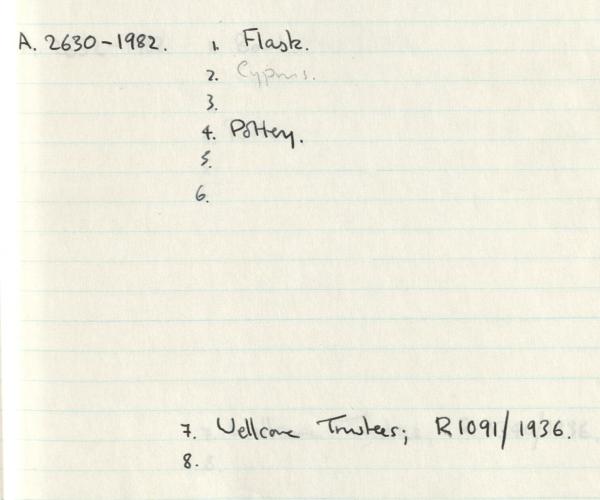 A. 2630-1982. 1. Flask.
2. Cyprus.
3.
4. Pottery.
5.
6.
7. Wellcome Trustees; R1091/1936.
8.